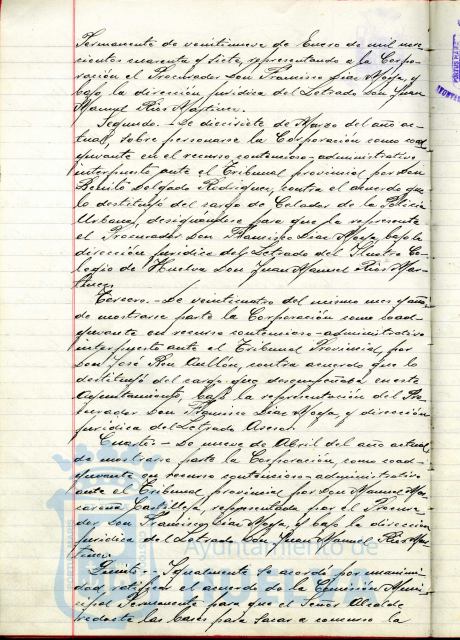 Permanente de veintinueve de Enero de mil nove-
cientos cuarenta y siete, representando a la Corpo-
ración el Procurador Don Francisco Díaz Moya, y
bajo la dirección jurídica del Letrado Don Juan
Manuel Ríos Martínez.
Segundo.- De diecisiete de Marzo del año ac-
tual, sobre personarse la Corporación como coad-
yuvante en el recurso contencioso-administrativo
interpuesto ante el Tribunal provincial por Don
Benito Delgado Rodríguez, contra el acuerdo que
lo destituyó del cargo de Celador de la Policía
Urbana, designándose para que la represente
el Procurador Don Francisco Díaz Moya, bajo la
dirección jurídica del Letrado del Ilustre Co-
legio de Huelva Don Juan Manuel Ríos Mar-
tínez.
Tercero.- De veinticuatro del mismo mes y año,
de mostrarse parte la Corporación como coad-
yuvante en recurso contencioso-administrativo
interpuesto ante el Tribunal Provincial, por
Don José, contra acuerdo que lo
destituyó del cargo que desempeñaba en este
Ayuntamiento, bajo la representación del Pro-
curador Don Francisco Díaz Moya, y dirección
jurídica del Letrado Asesor.
Cuarto.- De nueve de Abril del año actual,
de mostrarse parte la Corporación, como coad-
yuvante en recurso contencioso-administrativo
ante el Tribunal provincial por Don Manuel Ma-
carena Castilleja, representada por el Procura-
dor Don Francisco Díaz Moya, y bajo la dirección
jurídica del Letrado Don Juan Manuel Ríos Mar-
tínez.
Quinto.- Igualmente se acordó por unanimi-
dad, ratificar el acuerdo de la Comisión Muni-
cipal Permanente para que el Señor Alcalde
redacte las bases para sacar a concurso la
Ayuntamiento de
HUELVA